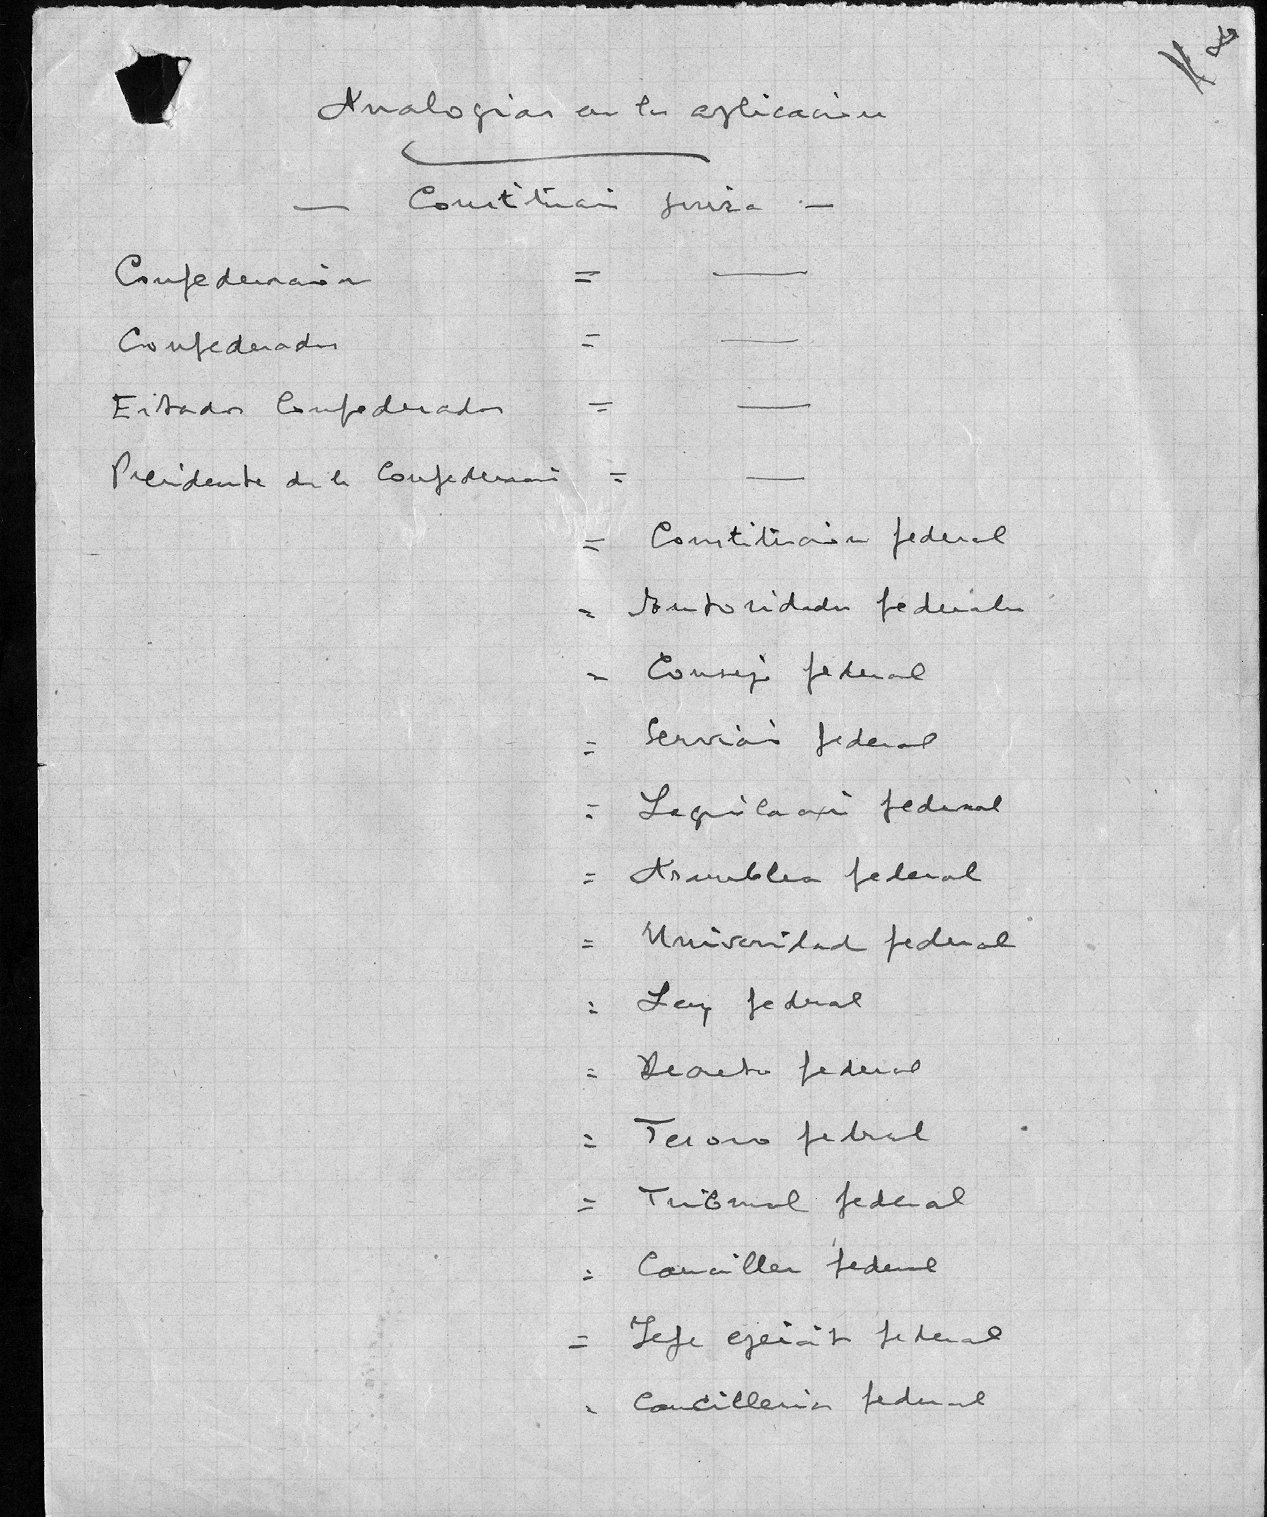 Analogias en la aplicación
— Constitución suiza —
Confederación = —
Confederados = —
Estados Confederados = —
Presidente de la Confederación = —
= Constitución federal
= Autoridades federales
= Consejo federal
= Servicio federal
= Legislación federal
= Asamblea federal
= Universidad federal
= Ley federal
= Decreto federal
= Tesoro federal
= Tribunal federal
= Canciller federal
= Jefe ejército federal
= Cancilleria federal